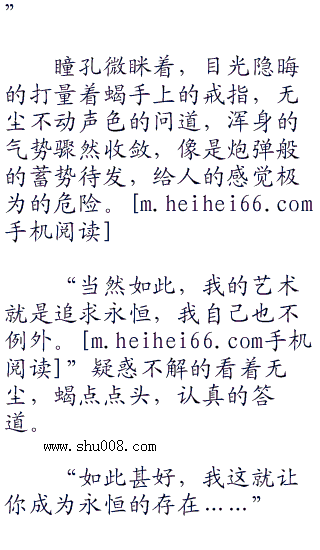 ”
瞳孔微眯着，目光隐晦
的打量着蝎手上的戒指，无
尘不动声色的问道，浑身的
气势骤然收敛，像是炮弹般
的蓄势待发，给人的感觉极
为的危险。[m.heihei66.com
手机阅读]
“当然如此，我的艺术
就是追求永恒，我自己也不
例外。[m.heihei66.com手机
阅读]”疑惑不解的看着无
尘，蝎点点头，认真的答
道。
www.shu008.com
“如此甚好，我这就让
你成为永恒的存在……”